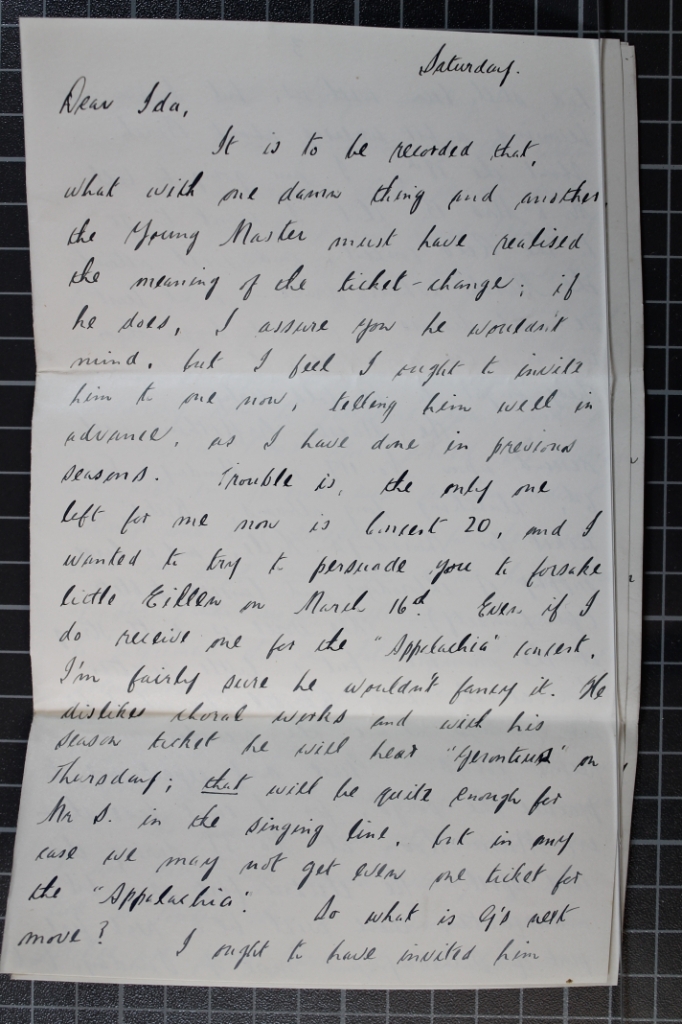 Saturday.
Dear Ida,
It is to be recorded that,
what with one damn thing and another,
the Young Master must have realised
the meaning of the ticket-change; if
he does, I assure you he wouldn't
mind, but I feel I ought to invite
him to one now, telling him well in
advance, as I have done in previous
seasons. Trouble is, the only one
left for me now is Concert 20, and I
wanted to try to persuade you to forsake
little Eileen on March 16th. Even if I
do receive one for the "Appalachia" concert,
I'm fairly sure he wouldn't fancy it. He
dislikes choral works and with his
season ticket he will hear "Gerontius" on
Thursday; that will be quite enough for
Mr S. in the singing line, but in any
case we may not get even one ticket for
the "Appalachia". So what is G's next
move? I ought to have invited him